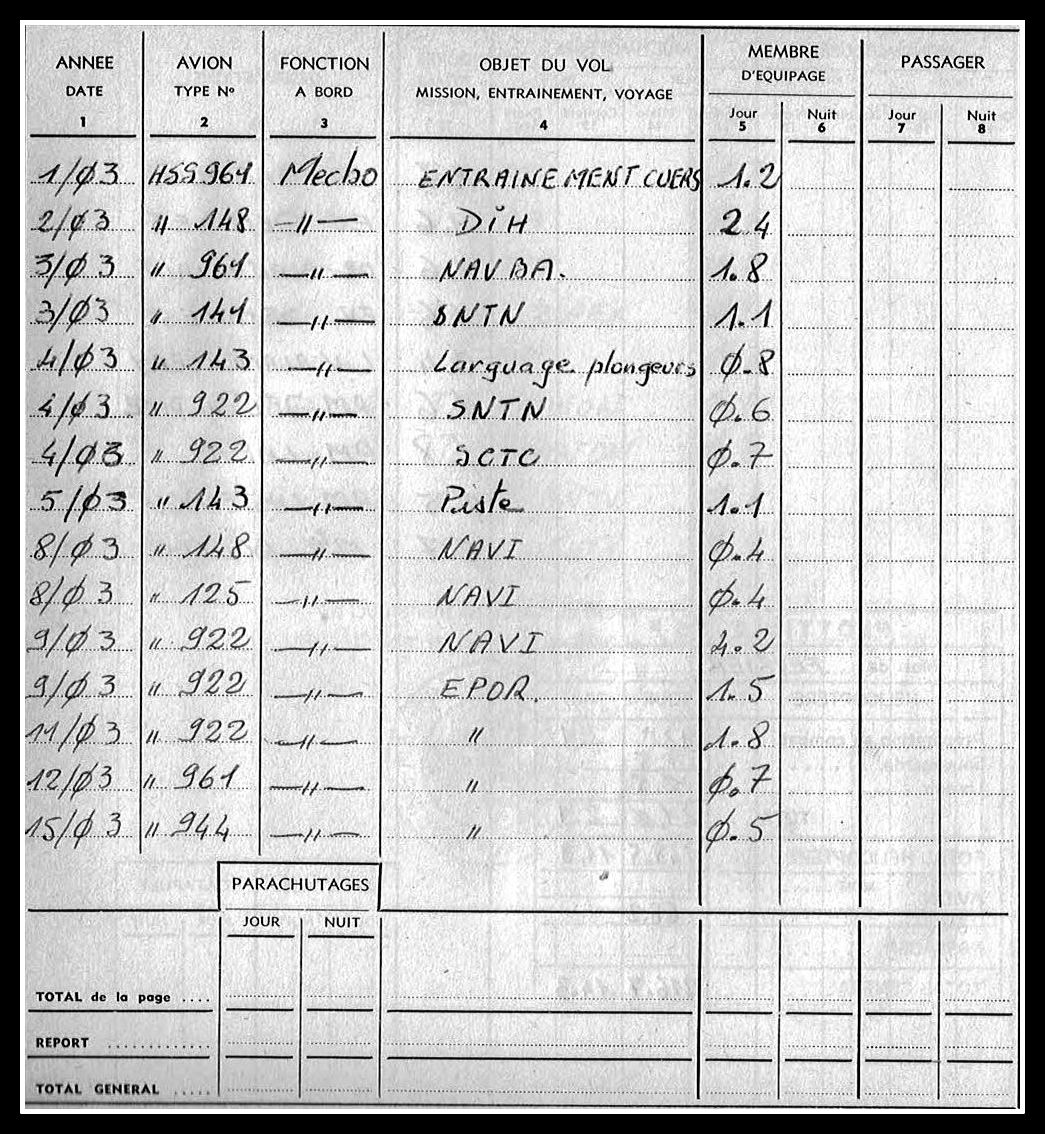 ANNEE AVION FONCTION OBJET DU VOL MEMBRE D'EQUIPAGE PASSAGER
DATE TYPE Nº A BORD MISSION, ENTRAINEMENT, VOYAGE Jour Nuit Jour Nuit
1 2 3 4 5 6 7 8
1/Ø3 HSS 961 Mecbo ENTRAINEMENT CUERS 1.2
2/Ø3 " 148 —"— DiH 2.4
3/Ø3 " 961 —"— NAV BA. 1.8
3/Ø3 " 141 —"— SNTN 1.1
4/Ø3 " 143 —"— Larguage plongeurs Ø.8
4/Ø3 " 922 —"— SNTN Ø.6
4/Ø3 " 922 —"— SCTC Ø.7
5/Ø3 " 143 —"— Piste 1.1
8/Ø3 " 148 —"— NAVI Ø.4
8/Ø3 " 125 —"— NAVI Ø.4
9/Ø3 " 922 —"— NAVI 1.2
9/Ø3 " 922 —"— EPOR. 1.5
11/Ø3 " 922 —"— " 1.8
12/Ø3 " 961 —"— " Ø.7
15/Ø3 " 944 —"— " Ø.5
PARACHUTAGES
JOUR NUIT
TOTAL de la page ....
REPORT .............
TOTAL GENERAL .....